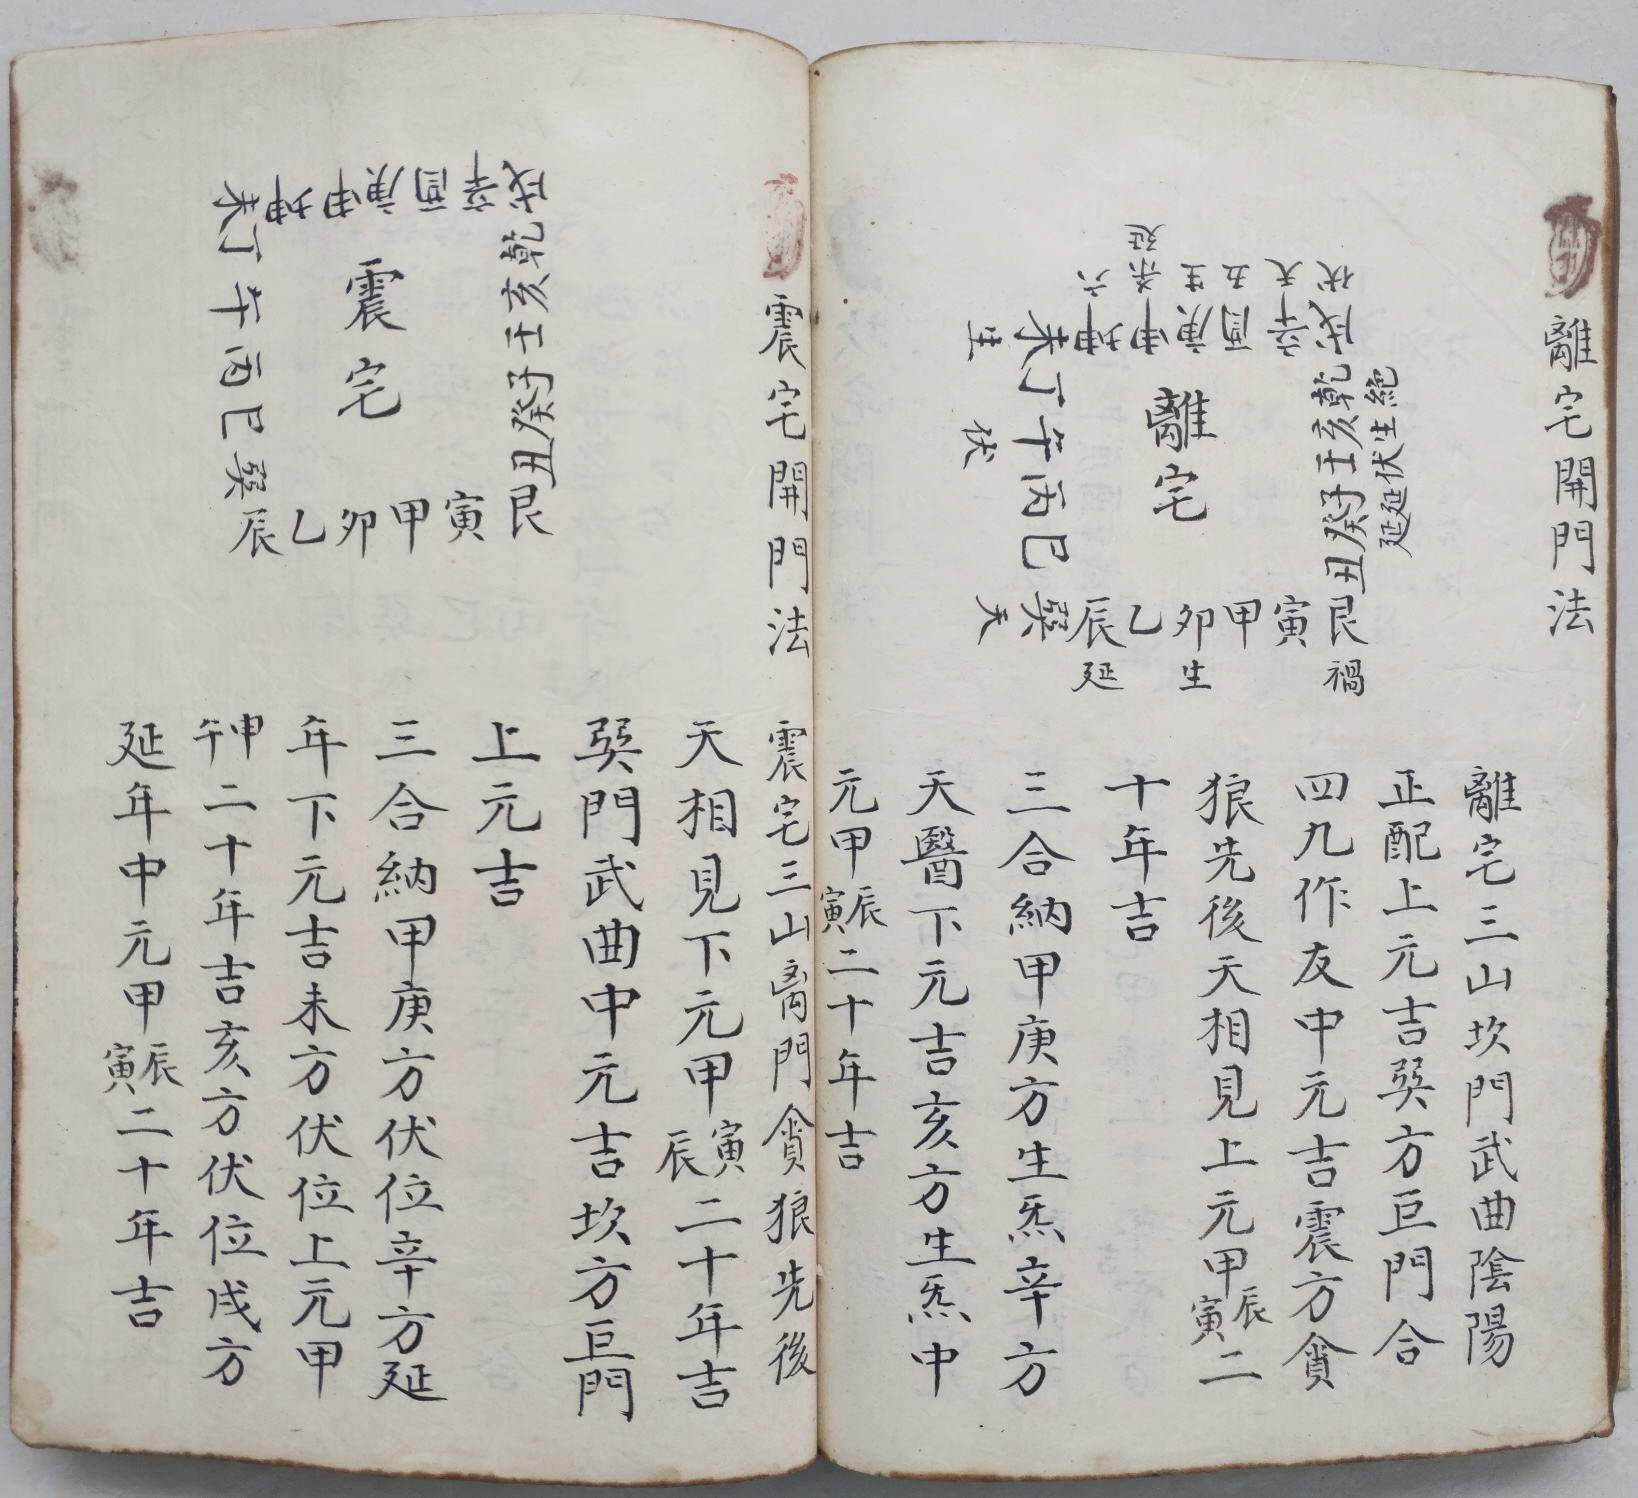 離宅開門法
絕生伏延延
乾亥壬子癸丑
伏天五生杀延六
戌辛酉庚申坤未
生伏天
丁午丙巳巽
離宅
辰乙卯甲寅艮
延生禍
離宅三山坎門武曲陰陽
正配上元吉巽方巨門合
四九作友中元吉震方貪
狼先後天相見上元甲辰寅二
十年吉
三合納甲庚方生炁辛方
天醫下元吉亥方生炁中
元甲辰寅二十年吉
震宅開門法
乾亥壬子癸丑
戌辛酉庚申坤未
丁午丙巳巽
震宅
辰乙卯甲寅艮
震宅三山离門貪狼先後
天相見下元甲寅辰二十年吉
巽門武曲中元吉坎方巨門
上元吉
三合納甲庚方伏位辛方延
年下元吉未方伏位上元甲
申午二十年吉亥方伏位戌方
延年中元甲辰寅二十年吉